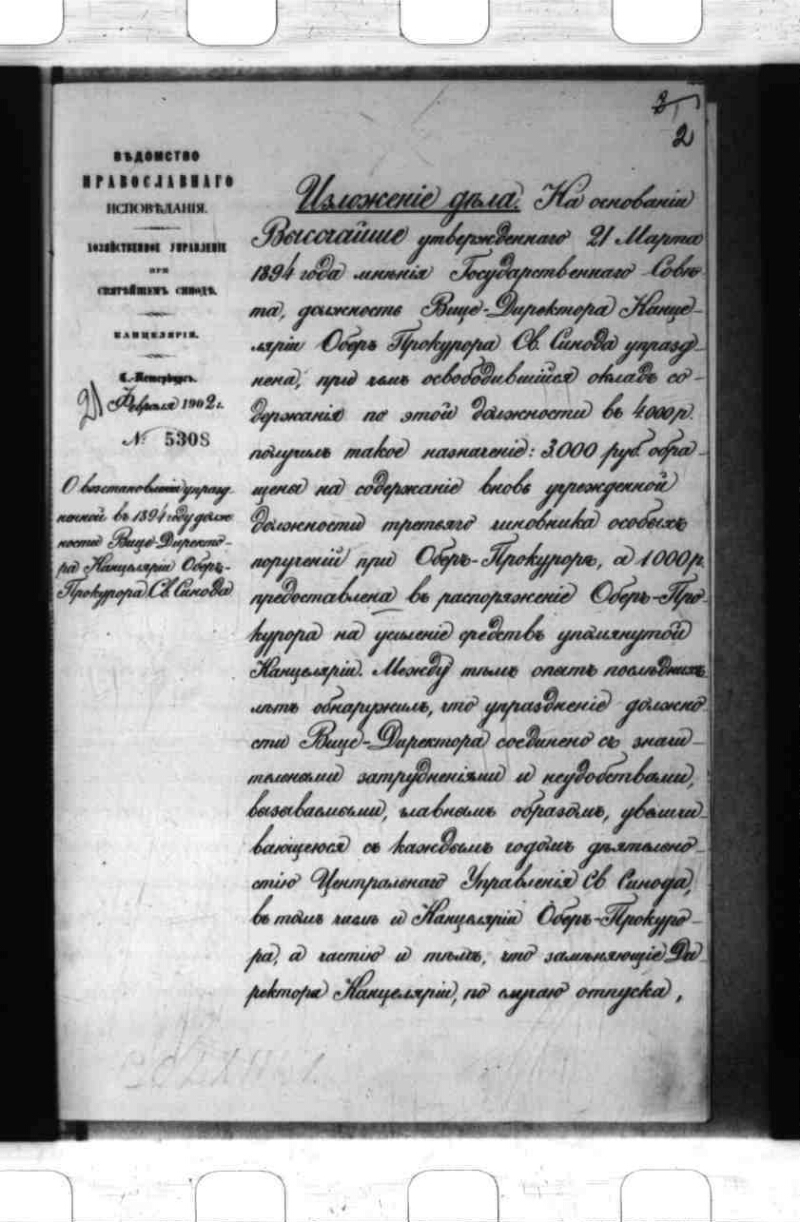 3
2
ВѢДОМСТВО
ПРАВОСЛАВНАГО
ИСПОВѢДАНІЯ.
ХОЗЯЙСТВЕННОЕ УПРАВЛЕНІЕ
ПРИ
СВЯТѢЙШЕМЪ СИНОДѢ.
КАНЦЕЛЯРІЯ.
С.-Петербургъ.
21 Февраля 1902 г.
№ 5308
О возстановленіи упразд-
ненной въ 1894 году долж-
ности Вице-Директо-
ра Канцеляріи Оберъ-
Прокурора Св. Синода
Изложеніе дѣла. На основаніи
Высочайше утвержденнаго 21 Марта
1894 года мнѣнія Государственнаго Совѣ-
та, должность Вице-Директора Канце-
ляріи Оберъ Прокурора Св. Синода упразд-
нена, при чемъ освободившійся окладъ со-
держанія по этой должности въ 4000 р.
получилъ такое назначеніе: 3.000 руб. обра-
щены на содержаніе вновь учрежденной
должности третьяго чиновника особыхъ
порученій при Оберъ-Прокурорѣ, а 1000 р.
предоставлена въ распоряженіе Оберъ-Про-
курора на усиленіе средствъ упомянутой
Канцеляріи. Между тѣмъ опытъ послѣднихъ
лѣтъ обнаружилъ, что упраздненіе должно-
сти Вице-Директора соединено съ значи-
тельными затрудненіями и неудобствами,
вызываемыми, главнымъ образомъ, увеличи-
вающеюся съ каждымъ годомъ дѣятельно-
стію Центральнаго Управленія Св. Синода,
въ томъ числѣ и Канцеляріи Оберъ-Прокуро-
ра, а частію и тѣмъ, что замѣняющіе Ди-
ректора Канцеляріи, по случаю отпуска,